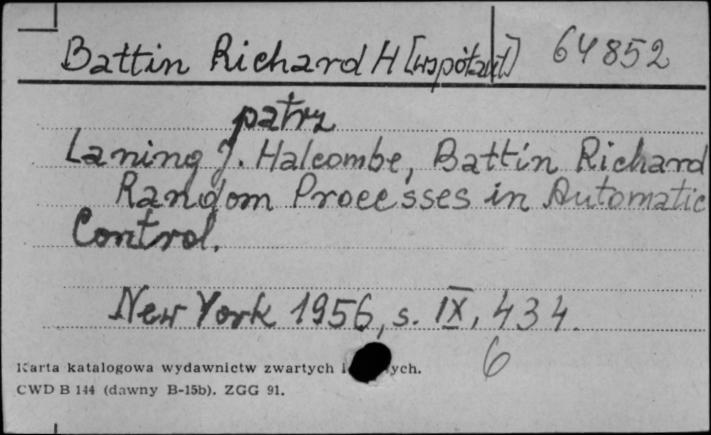 Battin Richard H [współaut] 64852
patrz
Laning J. Halcombe, Battin Richard
Random Processes in Automatic
Control.
New York 1956, s. IX, 434.
6
Karta katalogowa wydawnictw zwartych
CWD B 144 (dawny B-15b). ZGG 91.